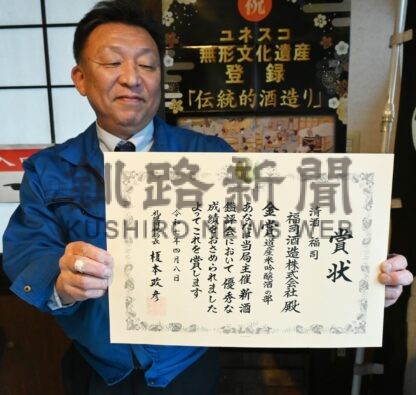 祝
ユネスコ
無形文化遺産
登録
「伝統的酒造り」
釧路新聞
KUSHIRO NEWS WEB
賞状
清酒 福司
福司酒造株式会社 殿
道産米吟醸酒の部
あなたは当局主催新酒
鑑評会において優秀な
成績をおさめられました
よってこれを賞します
年四月八日
榎本政彦